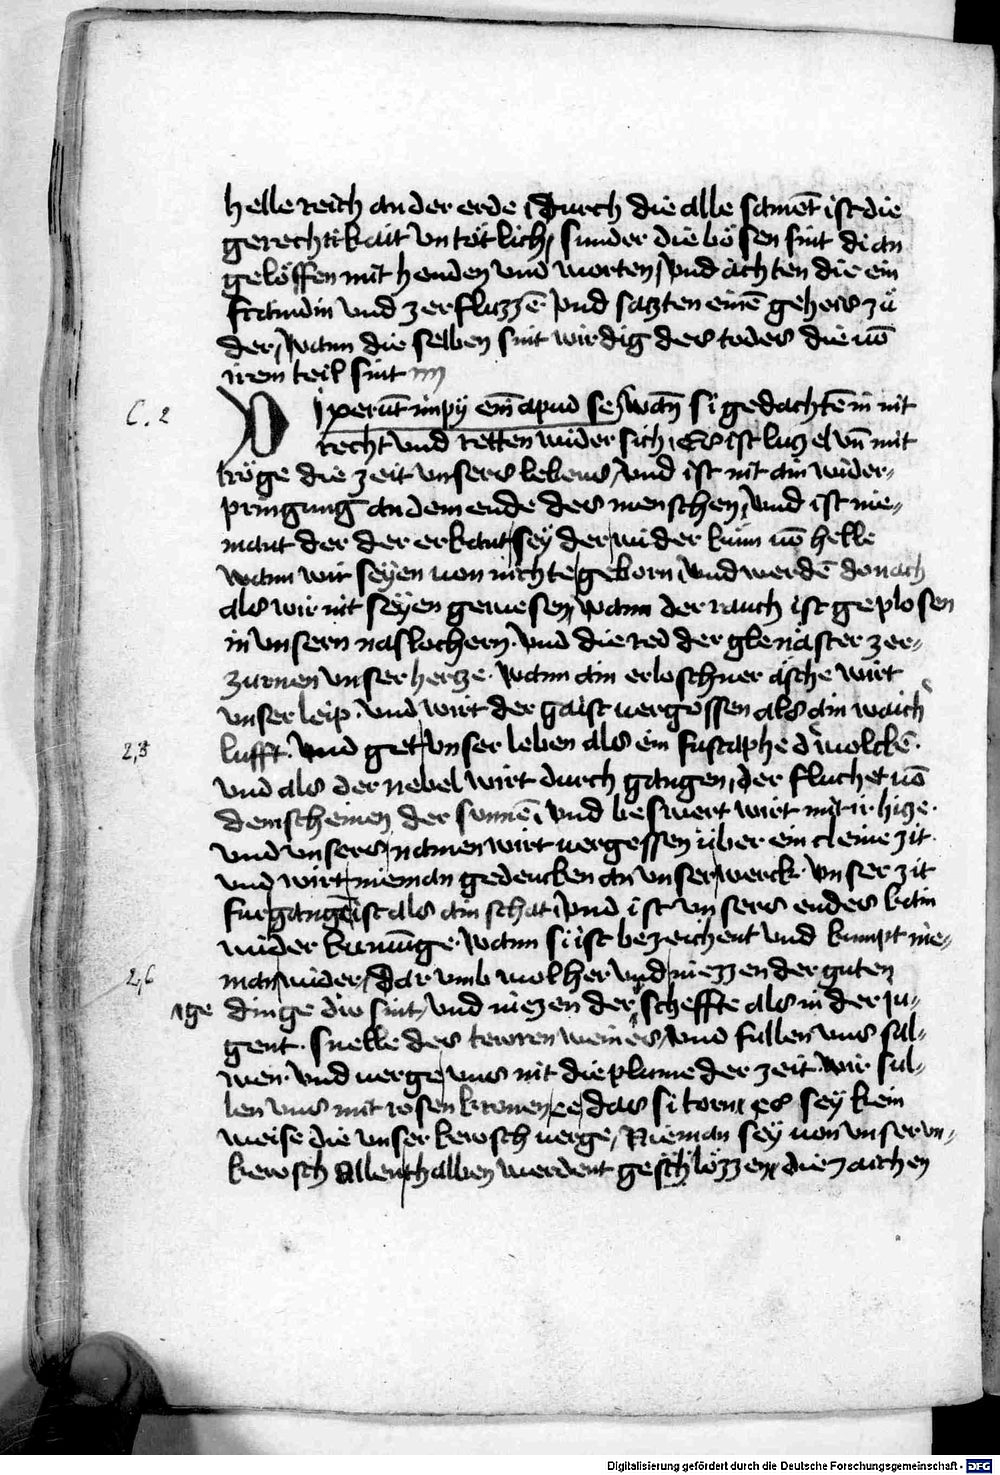 helle reich an der erde / durch die alle samēt ist die
gerechtikait vntötlich / sunder die bösen sint di an
gelöffen mit henden vnd worten / vnd achten die ein
frawndin vnd zerfluzzē vnd satzten einē gehers zů
der / wann die selben sint wirdig des todes die uō
irem teil sint
C. 2
Dixerūt impij em̄ apud se / wan̄ si gedachtē in nit
recht vnd retten wider sich / Es ist luzel vn̄ mit
tröge die zeit vnsers lebens / vnd ist nit ain wider-
pringung an dem ende des menschen / vnd ist nie-
mant der der erkant sey der wider kum uō helle
wann wir seyen von nichte geborn / vnd werdē donach
als wir nit seyen gewesen / wann der rauch ist geplosen
in vnsern naslochern · vnd die red der glenaster zer-
zurnen vnser hertze · wann ain erloschner äsche wirt
vnser leip · vnd wirt der gaist uergossen als ain waich
2,3
lufft · vnd get vnser leben als ein fustaphe d' wolckē ·
vnd als der nebel wirt durch gangen / der fluchet uō
dem scheinen der sunnē / vnd beswert wirt mit ir hize ·
vnd vnsers namen wirt uergessen über ein cleine zit ·
vnd wirt nieman gedencken an vnser werck · vnser zit
furgangē ist als ain schat / vnd ist vnsers endes kain
wider kumūge · wann si ist bezeichent vnd kumpt nie-
2,6
man wider / dar vmb wol her vnd niezzen der guten
dinge die sint / vnd niezen der scheffte als in der ju-
ige
gent · snelle des tewren weines / vnd fullen vns sul-
wen · vnd uerge vns nit die plume der zeit · wir sul-
len vns mit rosen kronen ee das si torn / es sey kein
weise die vnser kewsch uerge / Nieman sey von vnser vn-
kewsch allenthalben werdent geschlözzen / die zaichen
Digitalisierung gefördert durch die Deutsche Forschungsgemeinschaft - DFG